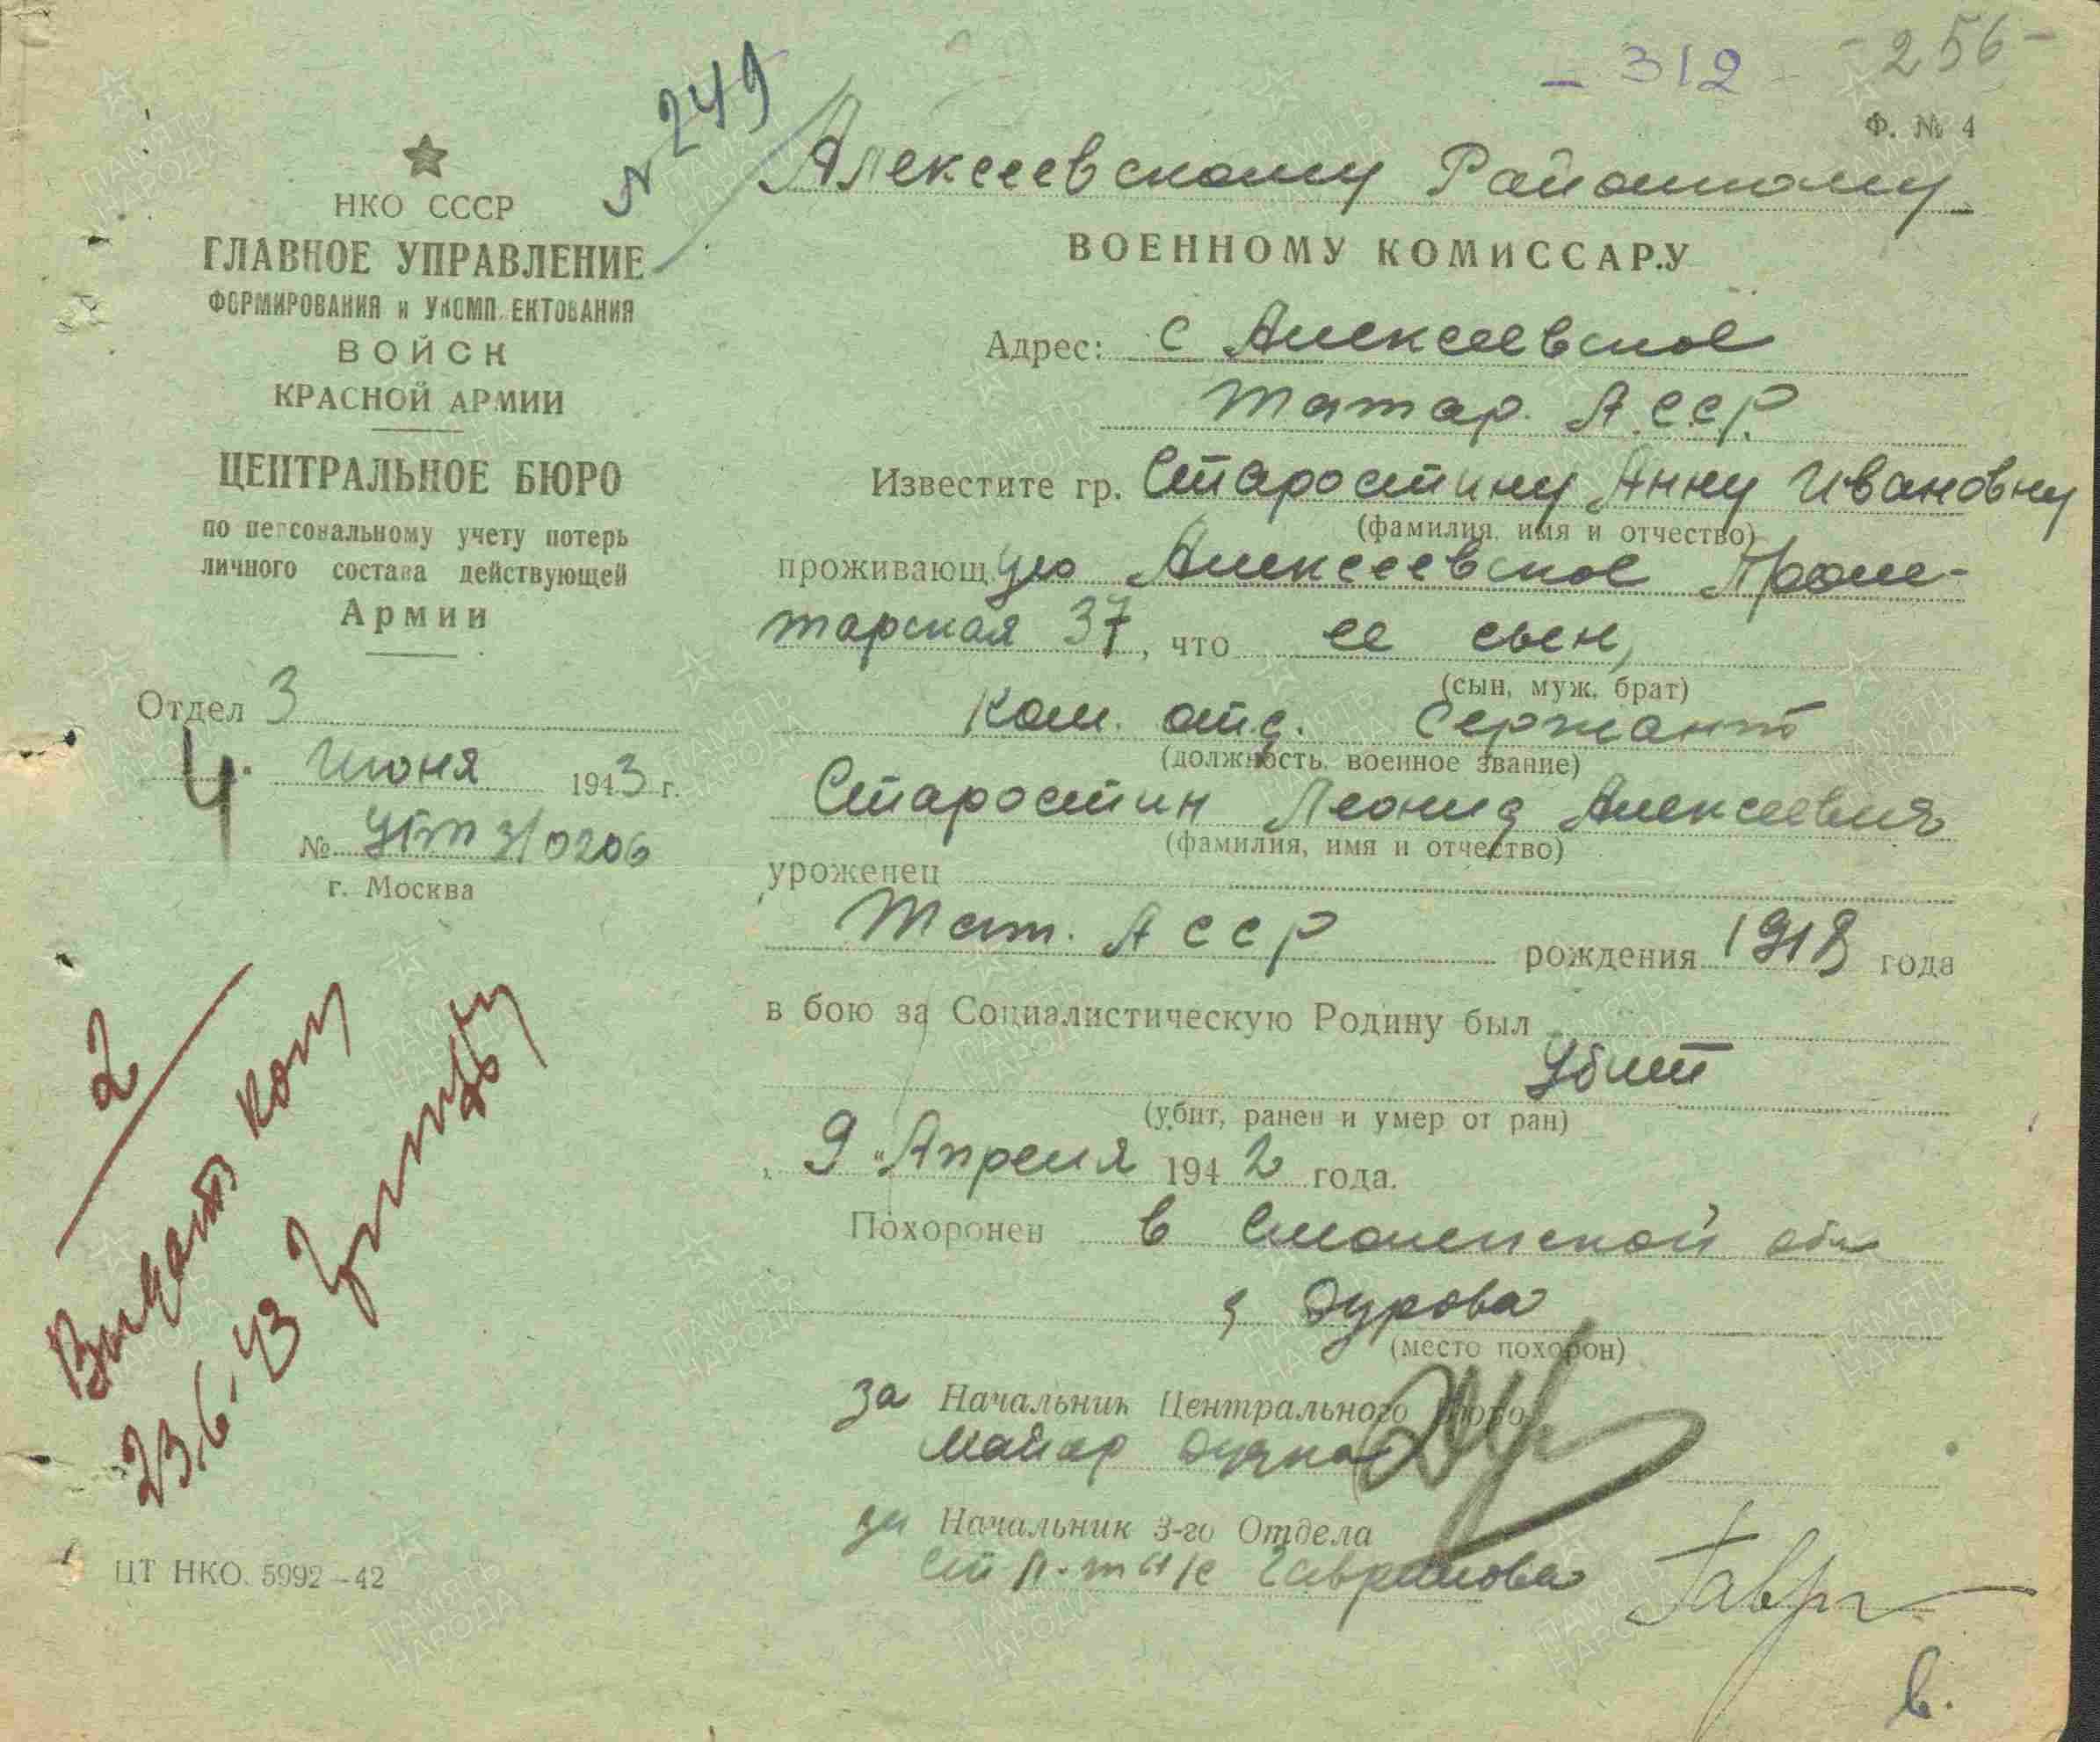 - 312 -
- 256 -
Ф. № 4
N 249
НКО СССР
ГЛАВНОЕ УПРАВЛЕНИЕ
ФОРМИРОВАНИЯ и УКОМПЛЕКТОВАНИЯ
ВОЙСК
КРАСНОЙ АРМИИ
ЦЕНТРАЛЬНОЕ БЮРО
по персональному учету потерь
личного состава действующей
Армии
Отдел 3
4. июня 1943 г.
№ 3/0206
г. Москва
2
Выдать
23.6.43
ЦТ НКО. 5992—42
Алексеевскому Районному
ВОЕННОМУ КОМИССАРУ
Адрес: с Алексеевское
Татар. А.С.С.Р.
Известите гр. Старостину Анну Ивановну
(фамилия, имя и отчество)
проживающ ую Алексеевское Проле-
тарская 37, что ее сын,
(сын, муж, брат)
Ком. отд. Сержант
(должность, военное звание)
Старостин Леонид Алексеевич
(фамилия, имя и отчество)
уроженец
Тат. АССР рождения 1918 года
в бою за Социалистическую Родину был
Убит
(убит, ранен и умер от ран)
„ 9 " Апреля 1942 года.
Похоронен в Смоленской обл
д Дурова
(место похорон)
за Начальник Центрального Бюро
Майор
за Начальник 3-го Отдела
Гаврилова
в.
ПАМЯТЬ НАРОДА